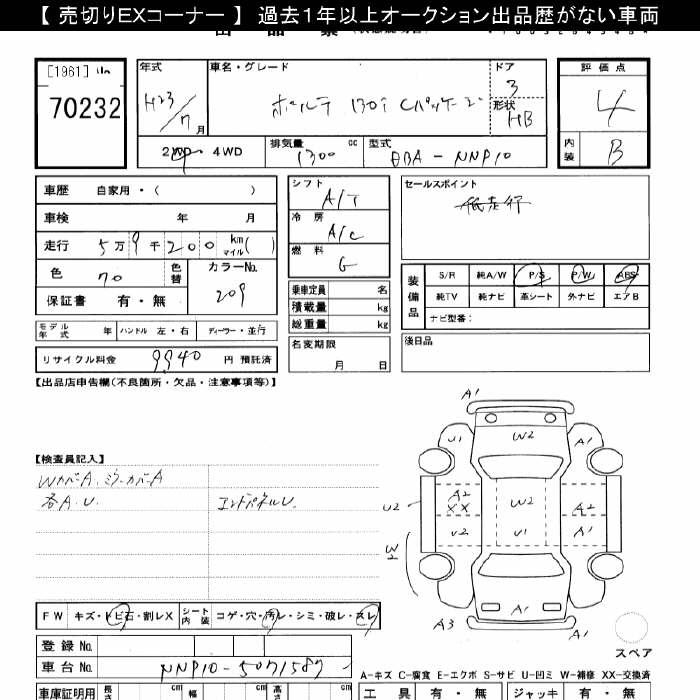 【 売切りEXコーナー 】 過去１年以上オークション出品歴がない車両
[1961]
70232
年式
H23/7月
車名・グレード
ポルテ 130i Cパッケージ
ドア
3
形状
HB
評価点
4
内装
B
2WD・4WD
排気量
1300 cc
型式
DBA-NNP10
車歴 自家用・( )
車検 年 月
走行 5万9千200 km マイル( )
色 クロ
色替
カラーNo.
209
保証書 有・無
モデル年式 年
ハンドル 左・右
ディーラー・並行
リサイクル料金 9940 円 預託済
シフト
A/T
冷房
A/C
燃料
G
乗車定員 名
積載量 kg
総重量 kg
名変期限
月 日
セールスポイント
低走行
装備品
S/R 純A/W P/S P/W ABS
純TV 純ナビ 革シート 外ナビ エアB
ナビ型番：
後日品
【出品店申告欄(不良箇所・欠品・注意事項等)】
【検査員記入】
WカバーA、ミラーカバーA
各A.U
エンドパネルU.
A1
U1
W2
A1
A2
XX
W2
A2
U2
U2
U1
A1
W2
A1
A3
A1
スペア
FW キズ・トビ石・割レX
シート内装 コゲ・穴・汚レ・シミ・破レ・スレ
登録 No.
車台 No. NNP10-5071587
車庫証明用 長さ cm 幅 cm 高さ cm
A-キズ C-腐食 E-エクボ S-サビ U-凹ミ W-補修 XX-交換済
工具 有・無 ジャッキ 有・無